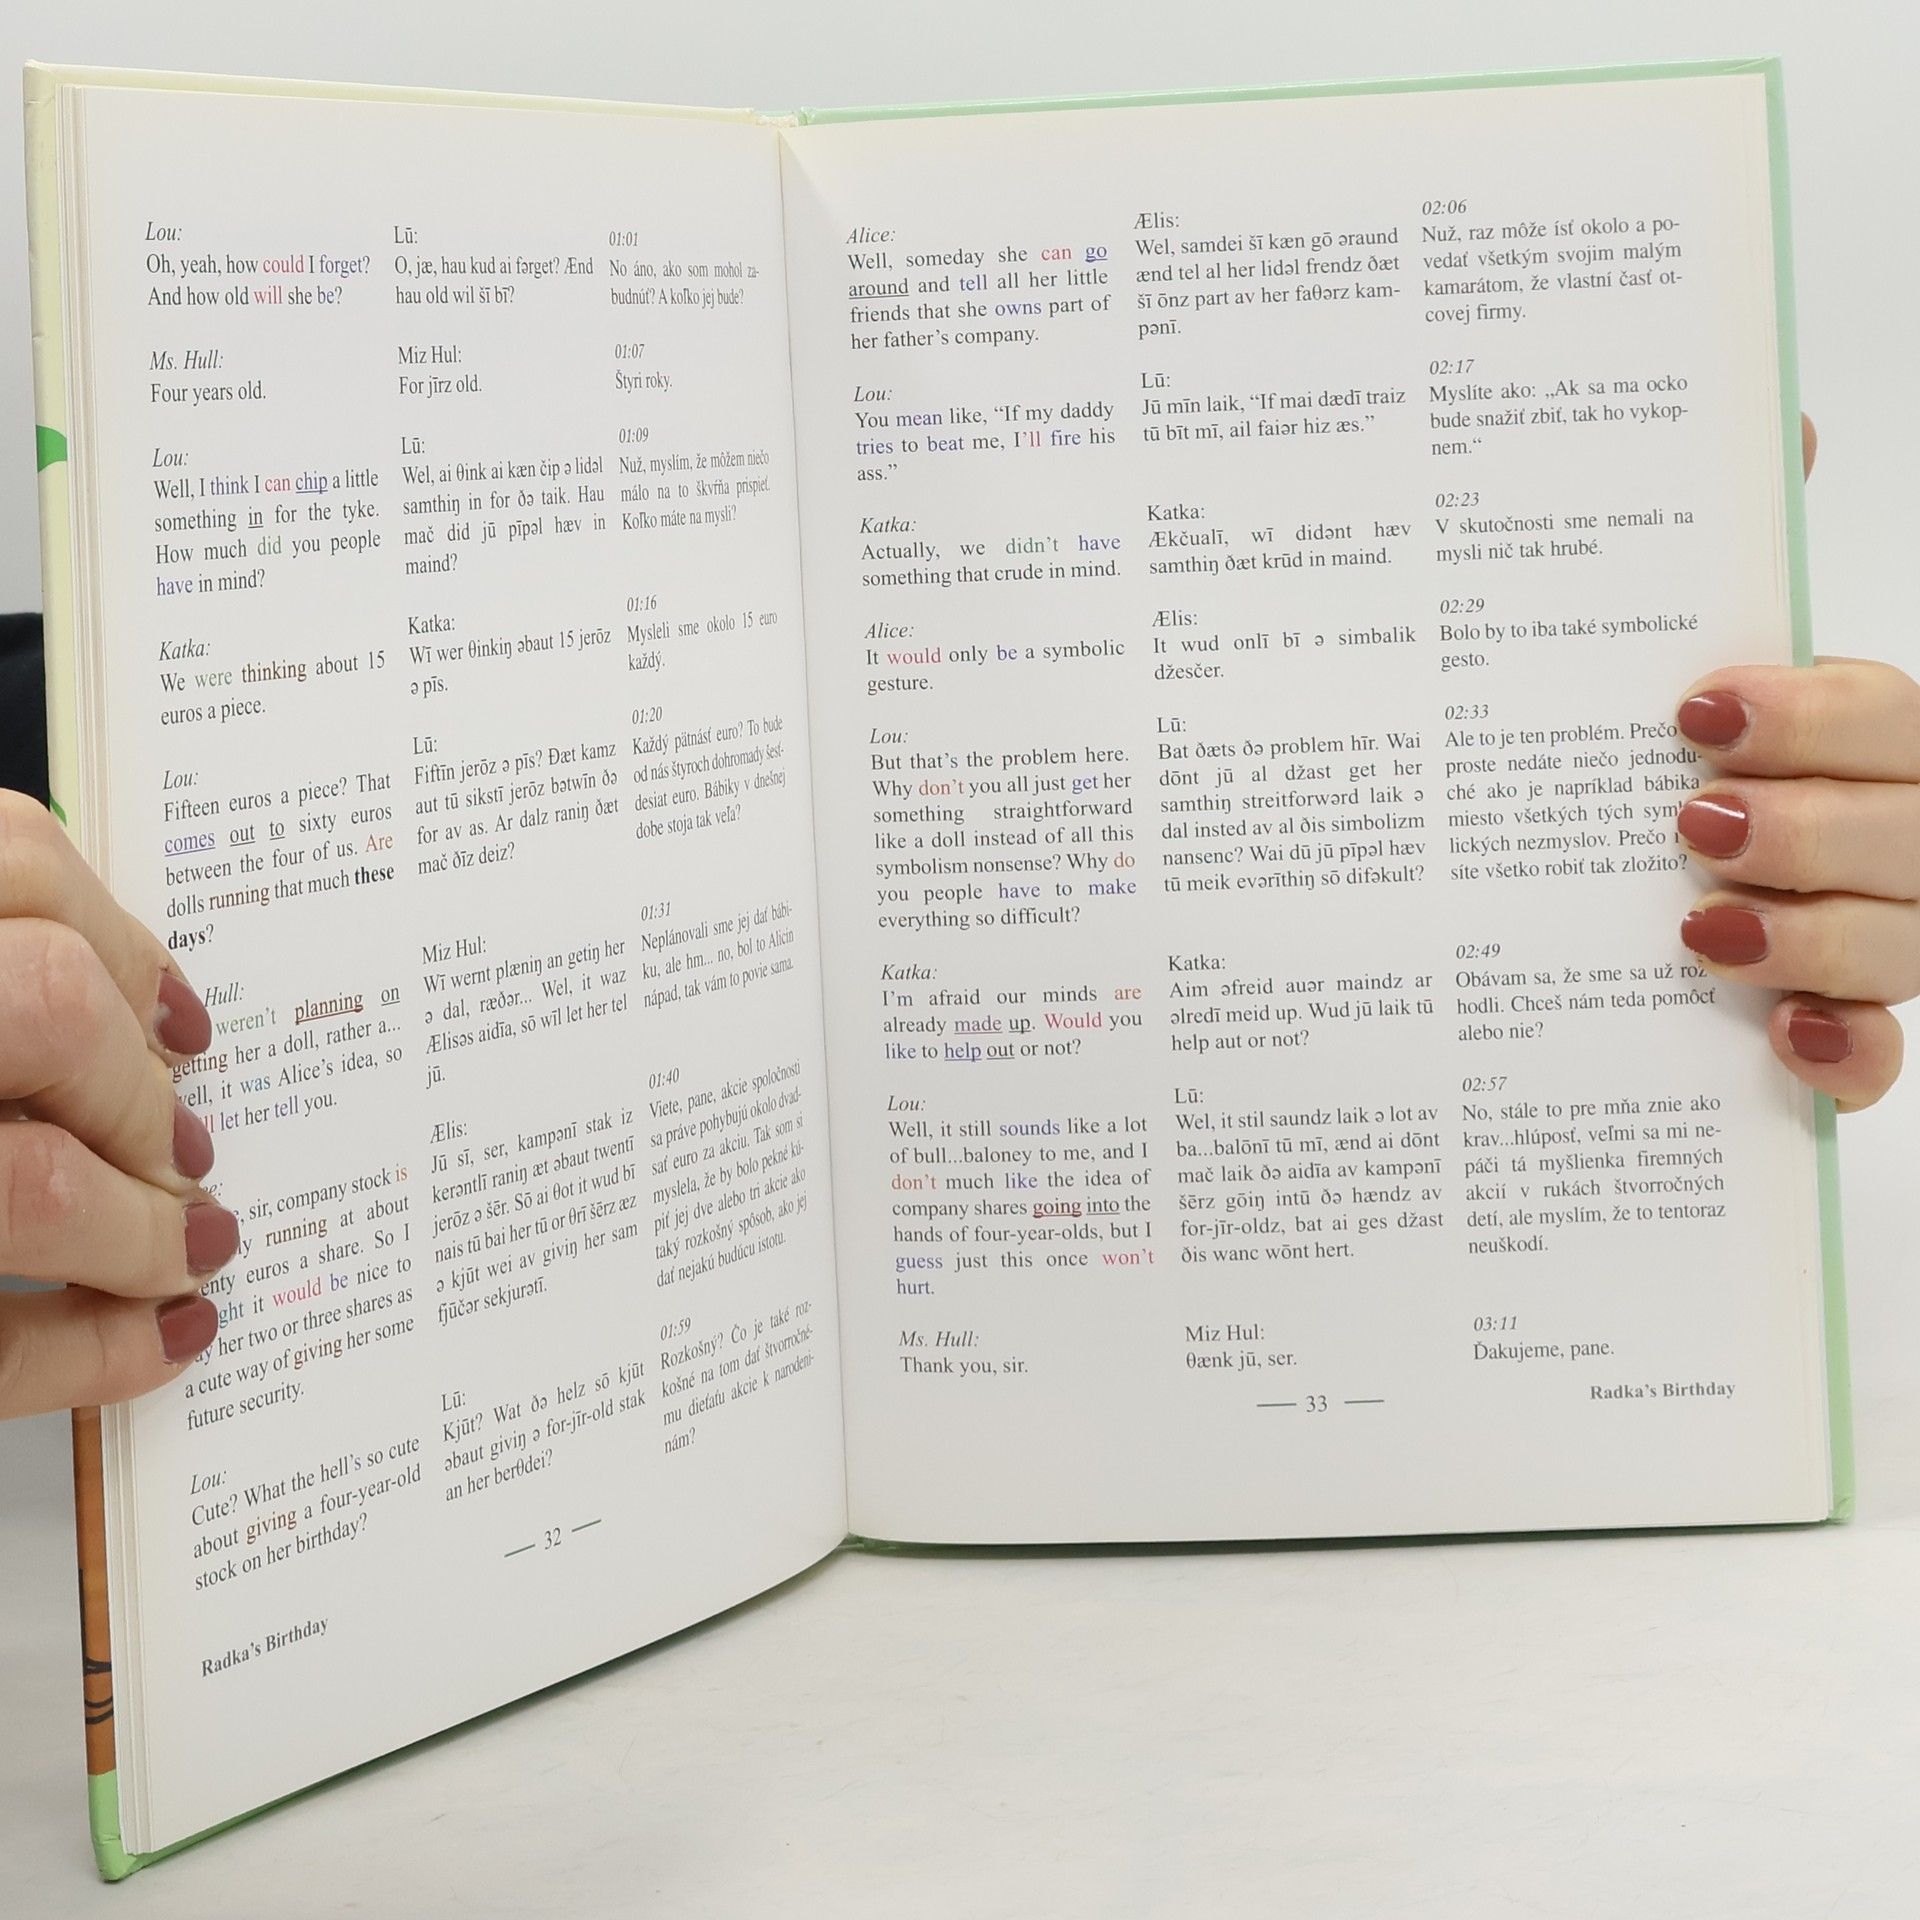 Lou:
Oh, yeah, how could I forget?
And how old will she be?
Ms. Hull:
Four years old.
Lou:
Well, I think I can chip a little
something in for the tyke.
How much did you people
have in mind?
Katka:
We were thinking about 15
euros a piece.
Lou:
Fifteen euros a piece? That
comes out to sixty euros
between the four of us. Are
dolls running that much these
days?
Hull:
weren't planning on
getting her a doll, rather a...
well, it was Alice's idea, so
let her tell you.
sir, company stock is
running at about
euros a share. So I
it would be nice to
her two or three shares as
a cute way of giving her some
future security.
Lou:
Cute? What the hell's so cute
about giving a four-year-old
stock on her birthday?
Lū:
O, jæ, hau kud ai fərget? Ænd
hau old wil šī bī?
Miz Hul:
For jīrz old.
Lū:
Wel, ai θink ai kæn čip ə lidəl
samthiŋ in for ðə taik. Hau
mač did jū pīpəl hæv in
maind?
Katka:
Wī wer θinkiŋ əbaut 15 jerōz
ə pīs.
Lū:
Fiftīn jerōz ə pīs? Ðæt kamz
aut tū sikstī jerōz bətwīn ðə
for av as. Ar dalz raniŋ ðæt
mač ðīz deiz?
Miz Hul:
Wī wernt plæniŋ an getiŋ her
ə dal, ræðər... Wel, it waz
Ælisəs aidīa, sō wīl let her tel
jū.
Ælis:
Jū sī, ser, kampənī stak iz
kerəntlī raniŋ æt əbaut twentī
jerōz ə šēr. Sō ai θot it wud bī
nais tū bai her tū or θrī šērz æz
ə kjūt wei av giviŋ her sam
fjūčər sekjurətī.
Lū:
Kjūt? Wat ðə helz sō kjūt
əbaut giviŋ ə for-jīr-old stak
an her berθdei?
01:01
No áno, ako som mohol za-
budnúť? A koľko jej bude?
01:07
Štyri roky.
01:09
Nuž, myslím, že môžem niečo
málo na to škvŕňa prispieť.
Koľko máte na mysli?
01:16
Mysleli sme okolo 15 euro
každý.
01:20
Každý pätnásť euro? To bude
od nás štyroch dohromady šesť-
desiat euro. Bábiky v dnešnej
dobe stoja tak veľa?
01:31
Neplánovali sme jej dať bábi-
ku, ale hm... no, bol to Alicin
nápad, tak vám to povie sama.
01:40
Viete, pane, akcie spoločnosti
sa práve pohybujú okolo dvad-
sať euro za akciu. Tak som si
myslela, že by bolo pekné kú-
piť jej dve alebo tri akcie ako
taký rozkošný spôsob, ako jej
dať nejakú budúcu istotu.
01:59
Rozkošný? Čo je také roz-
košné na tom dať štvorročné-
mu dieťaťu akcie k narodeni-
nám?
32
Radka's Birthday
Alice:
Well, someday she can go
around and tell all her little
friends that she owns part of
her father's company.
Lou:
You mean like, “If my daddy
tries to beat me, I'll fire his
ass.”
Katka:
Actually, we didn't have
something that crude in mind.
Alice:
It would only be a symbolic
gesture.
Lou:
But that's the problem here.
Why don't you all just get her
something straightforward
like a doll instead of all this
symbolism nonsense? Why do
you people have to make
everything so difficult?
Katka:
I'm afraid our minds are
already made up. Would you
like to help out or not?
Lou:
Well, it still sounds like a lot
of bull...baloney to me, and I
don't much like the idea of
company shares going into the
hands of four-year-olds, but I
guess just this once won't
hurt.
Ms. Hull:
Thank you, sir.
Ælis:
Wel, samdei šī kæn gō əraund
ænd tel al her lidəl frendz ðæt
šī ōnz part av her faθərz kam-
pənī.
Lū:
Jū mīn laik, “If mai dædī traiz
tū bīt mī, ail faiər hiz æs.”
Katka:
Ækčualī, wī didənt hæv
samthiŋ ðæt krūd in maind.
Ælis:
It wud onlī bī ə simbalik
džesčer.
Lū:
Bat ðæts ðə problem hīr. Wai
dōnt jū al džast get her
samthiŋ streitforwərd laik ə
dal insted av al ðis simbolizm
nansenc? Wai dū jū pīpəl hæv
tū meik evərīthiŋ sō difəkult?
Katka:
Aim əfreid auər maindz ar
əlredī meid up. Wud jū laik tū
help aut or not?
Lū:
Wel, it stil saundz laik ə lot av
ba...balōnī tū mī, ænd ai dōnt
mač laik ðə aidīa av kampənī
šērz gōiŋ intū ðə hændz av
for-jīr-oldz, bat ai ges džast
ðis wanc wōnt hert.
Miz Hul:
θænk jū, ser.
02:06
Nuž, raz môže ísť okolo a po-
vedať všetkým svojim malým
kamarátom, že vlastní časť ot-
covej firmy.
02:17
Myslíte ako: „Ak sa ma ocko
bude snažiť zbiť, tak ho vykop-
nem.“
02:23
V skutočnosti sme nemali na
mysli nič tak hrubé.
02:29
Bolo by to iba také symbolické
gesto.
02:33
Ale to je ten problém. Prečo
proste nedáte niečo jednodu-
ché ako je napríklad bábika
miesto všetkých tých
lických nezmyslov. Prečo
síte všetko robiť tak zložito?
02:49
Obávam sa, že sme sa už roz-
hodli. Chceš nám teda pomôcť
alebo nie?
02:57
No, stále to pre mňa znie ako
krav...hlúposť, veľmi sa mi ne-
páči tá myšlienka firemných
akcií v rukách štvorročných
detí, ale myslím, že to tentoraz
neuškodí.
03:11
Ďakujeme, pane.
33
Radka's Birthday